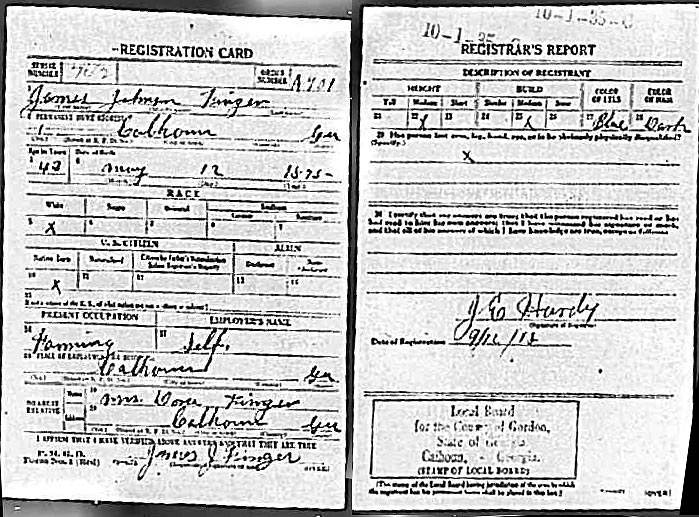 REGISTRATION CARD
SERIAL NUMBER
ORDER NUMBER A701
James Johnson Finger
PERMANENT HOME ADDRESS
Calhoun Ga
Age in Years Date of Birth
43 May 12 1875
RACE
White Negro Oriental Indian
X
U. S. CITIZEN ALIEN
Native Born Naturalized Citizen by Father's Naturalization Before Registrant's Majority Declarant
10 X
PRESENT OCCUPATION EMPLOYER'S NAME
Farming Self.
PLACE OF EMPLOYMENT OR BUSINESS
Calhoun Ga
NEAREST RELATIVE
Name Mrs. Dora Finger
Address Calhoun Ga
I AFFIRM THAT I HAVE VERIFIED ABOVE ANSWERS AND THAT THEY ARE TRUE
James J Finger
(OVER)
10-1-35-C
REGISTRAR'S REPORT
DESCRIPTION OF REGISTRANT
HEIGHT BUILD COLOR OF EYES COLOR OF HAIR
Tall Medium Short Slender Medium Stout
21 22 X 23 24 25 X 26 27 Blue 28 Dark
29 Has person lost arm, leg, hand, eye, or is he obviously physically disqualified?
(Specify.)
X
30 I certify that my answers are true; that the person registered has read or has
had read to him his own answers; that I have witnessed his signature or mark,
and that all of his answers of which I have knowledge are true, except as follows:
J. E. Hardy
(Signature of Registrar)
Date of Registration 9/12/18
Local Board
for the County of Gordon,
State of Georgia
Calhoun, - Georgia.
(STAMP OF LOCAL BOARD)
(The stamp of the Local Board having jurisdiction of the area in which
the registrant has his permanent home shall be placed in this box.)
(OVER)